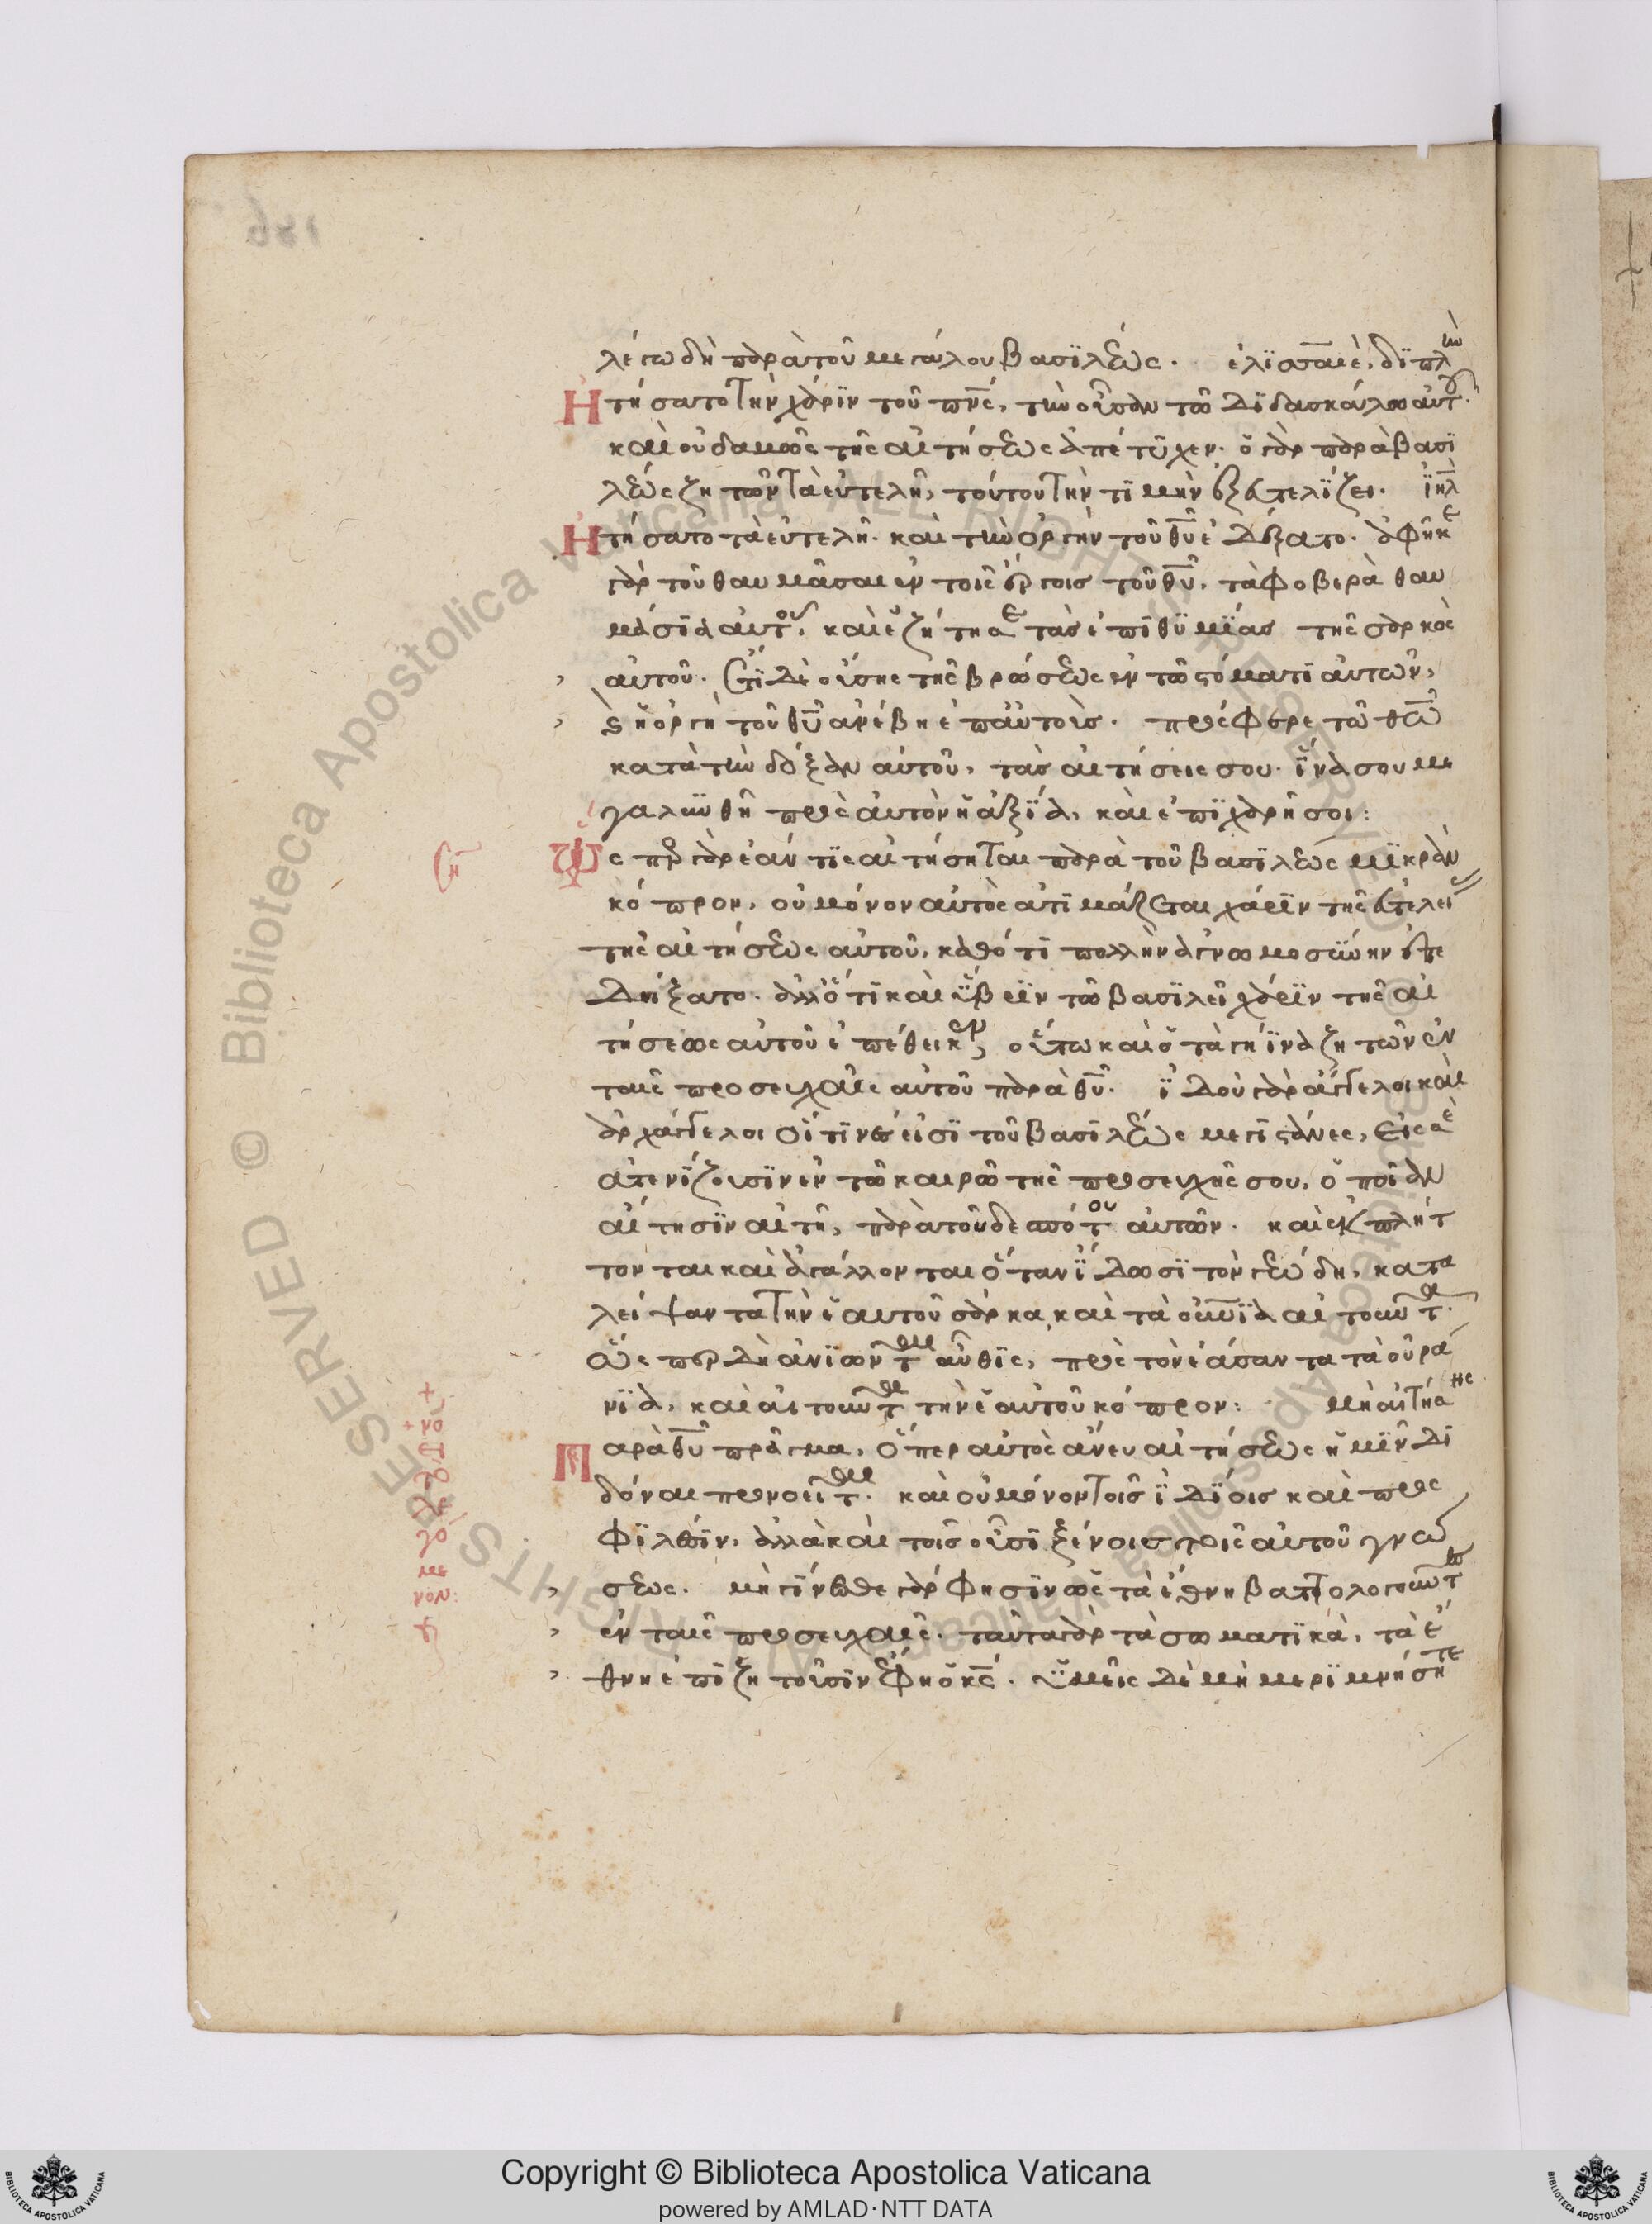 λέσω δὴ παρὰ τοῦ μεγάλου βασϊλέως. ἐλϊσσαιὲ, δϊπλὴν
Ἠτήσατο τὴν χάρϊν τοῦ πνς, τὴν οὖσαν τῶ δϊδασκάλω αὐτοῦ.
καὶ οὐδαμῶς τῆς αἰτήσεως ἀπέτυχεν. ὁ γὰρ παρὰ βασϊ
λέως ζητῶν τὰ εὐτελῆ, τούτου τὴν τϊμὴν ἐξευτελϊζει. ϊηλ
Ἠτήσατο τὰ εὐτελῆ. καὶ τὴν ὀργὴν τοῦ θυ ἐδέξατο. ἀφῆκε
γὰρ τοῦ θαυμάσαι ἐν τοῖς ἔργοις τοῦ θυ, τὰ φοβερὰ θαυ
μάσϊα αὐτοῦ, καὶ ἐζήτησε τὰς ἐπϊθυμΐας τῆς σαρκὸς
αὐτοῦ. ἔτϊ δὲ οὔσης τῆς βρώσεως ἐν τῶ στόματϊ αὐτῶν,
καὶ ἡ ὀργὴ τοῦ θυ ἀνέβη ἐπ αὐτοῖς. πρόσφερε τῶ θω
κατὰ τὴν δόξαν αὐτοῦ, τὰς αἰτήσεις σου. ἵνα σου με
γαλυνθῆ πρὸς αὐτὸν ἡ ἀξΐα, καὶ ἐπϊχαρῆ σοι:
Ὥσπερ γὰρ ἐάν τϊς αἰτήσηται παρὰ τοῦ βασϊλέως μϊκρὰν
κόπρον, οὐ μόνον αὐτὸς ἀτϊμάζεται χάρϊν τῆς εὐτελείας
τῆς αἰτήσεως αὐτοῦ, καθότϊ πολλὴν ἀγνωμοσύνην ἐπε
δείξατο. ἀλλ ὅτϊ καὶ ὕβρϊν τῶ βασϊλεῖ χάρϊν τῆς αἰ
τήσεως αὐτοῦ ἐπέθηκεν, οὕτω καὶ ὁ τὰ γήϊνα ζητῶν ἐν
ταῖς προσευχαῖς αὐτοῦ παρὰ θυ. ϊδοὺ γὰρ ἄγγελοι καὶ
ἀρχάγγελοι οἵτϊνές εἰσϊ τοῦ βασϊλέως μεγϊστάνες, εἰς σὲ
ἀτενΐζουσϊν ἐν τῶ καιρῶ τῆς προσευχῆς σου, ὁποίαν
αἴτησϊν αἰτῆ, παρὰ τοῦ δεσπότου αὐτῶν. καὶ ἐκπλήτ
τονται καὶ ἀγάλλονται ὅταν ΐδωσϊ τὸν γεώδη, κατα
λείψαντα τὴν ἑαυτοῦ σάρκα, καὶ τὰ οὐνϊα αἰτοῦντα.
ὥσπερ δὴ ἀνϊῶνται αὖθϊς, πρὸς τὸν ἐάσαντα τὰ οὐρά
νϊα, καὶ αἰτοῦντα τὴν ἑαυτοῦ κόπρον: μὴ αἰτήσης
Παρὰ θυ πρᾶγμα, ὅπερ αὐτὸς ἄνευ αἰτήσεως ἡμῖν δϊ
δόναι προνοεῖται. καὶ οὐ μόνον τοῖς ϊδΐοις καὶ προσ
φϊλέσϊν, ἀλλὰ καὶ τοῖς οὖσϊ ξένοις τῆς αὐτοῦ γνώ
σεως. μὴ γΐνεσθε γάρ φησϊν ὡς τὰ ἔθνη βαττολογοῦντες
ἐν ταῖς προσευχαῖς. ταῦτα γὰρ τὰ σωματϊκὰ, τὰ ἔ
θνη ἐπϊζητοῦσϊν ἔφη ὁ κς. ὑμεῖς δὲ μὴ μερϊμνήσητε